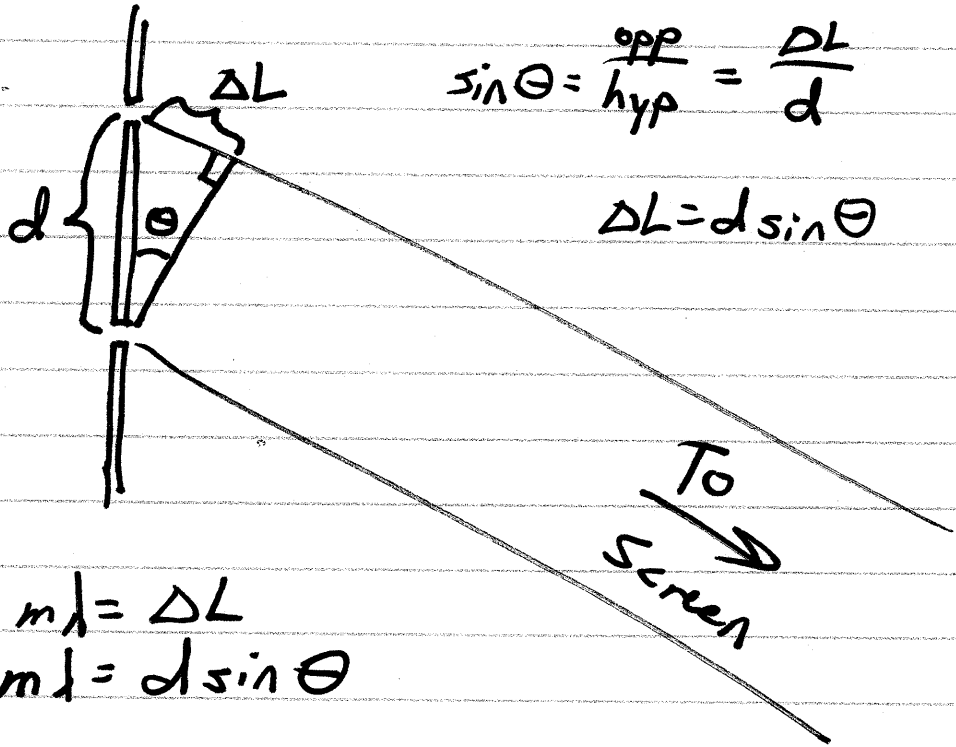 ΔL
sinθ = opp/hyp = ΔL/d
d
θ
ΔL = d sinθ
To
Screen
mλ = ΔL
mλ = d sinθ